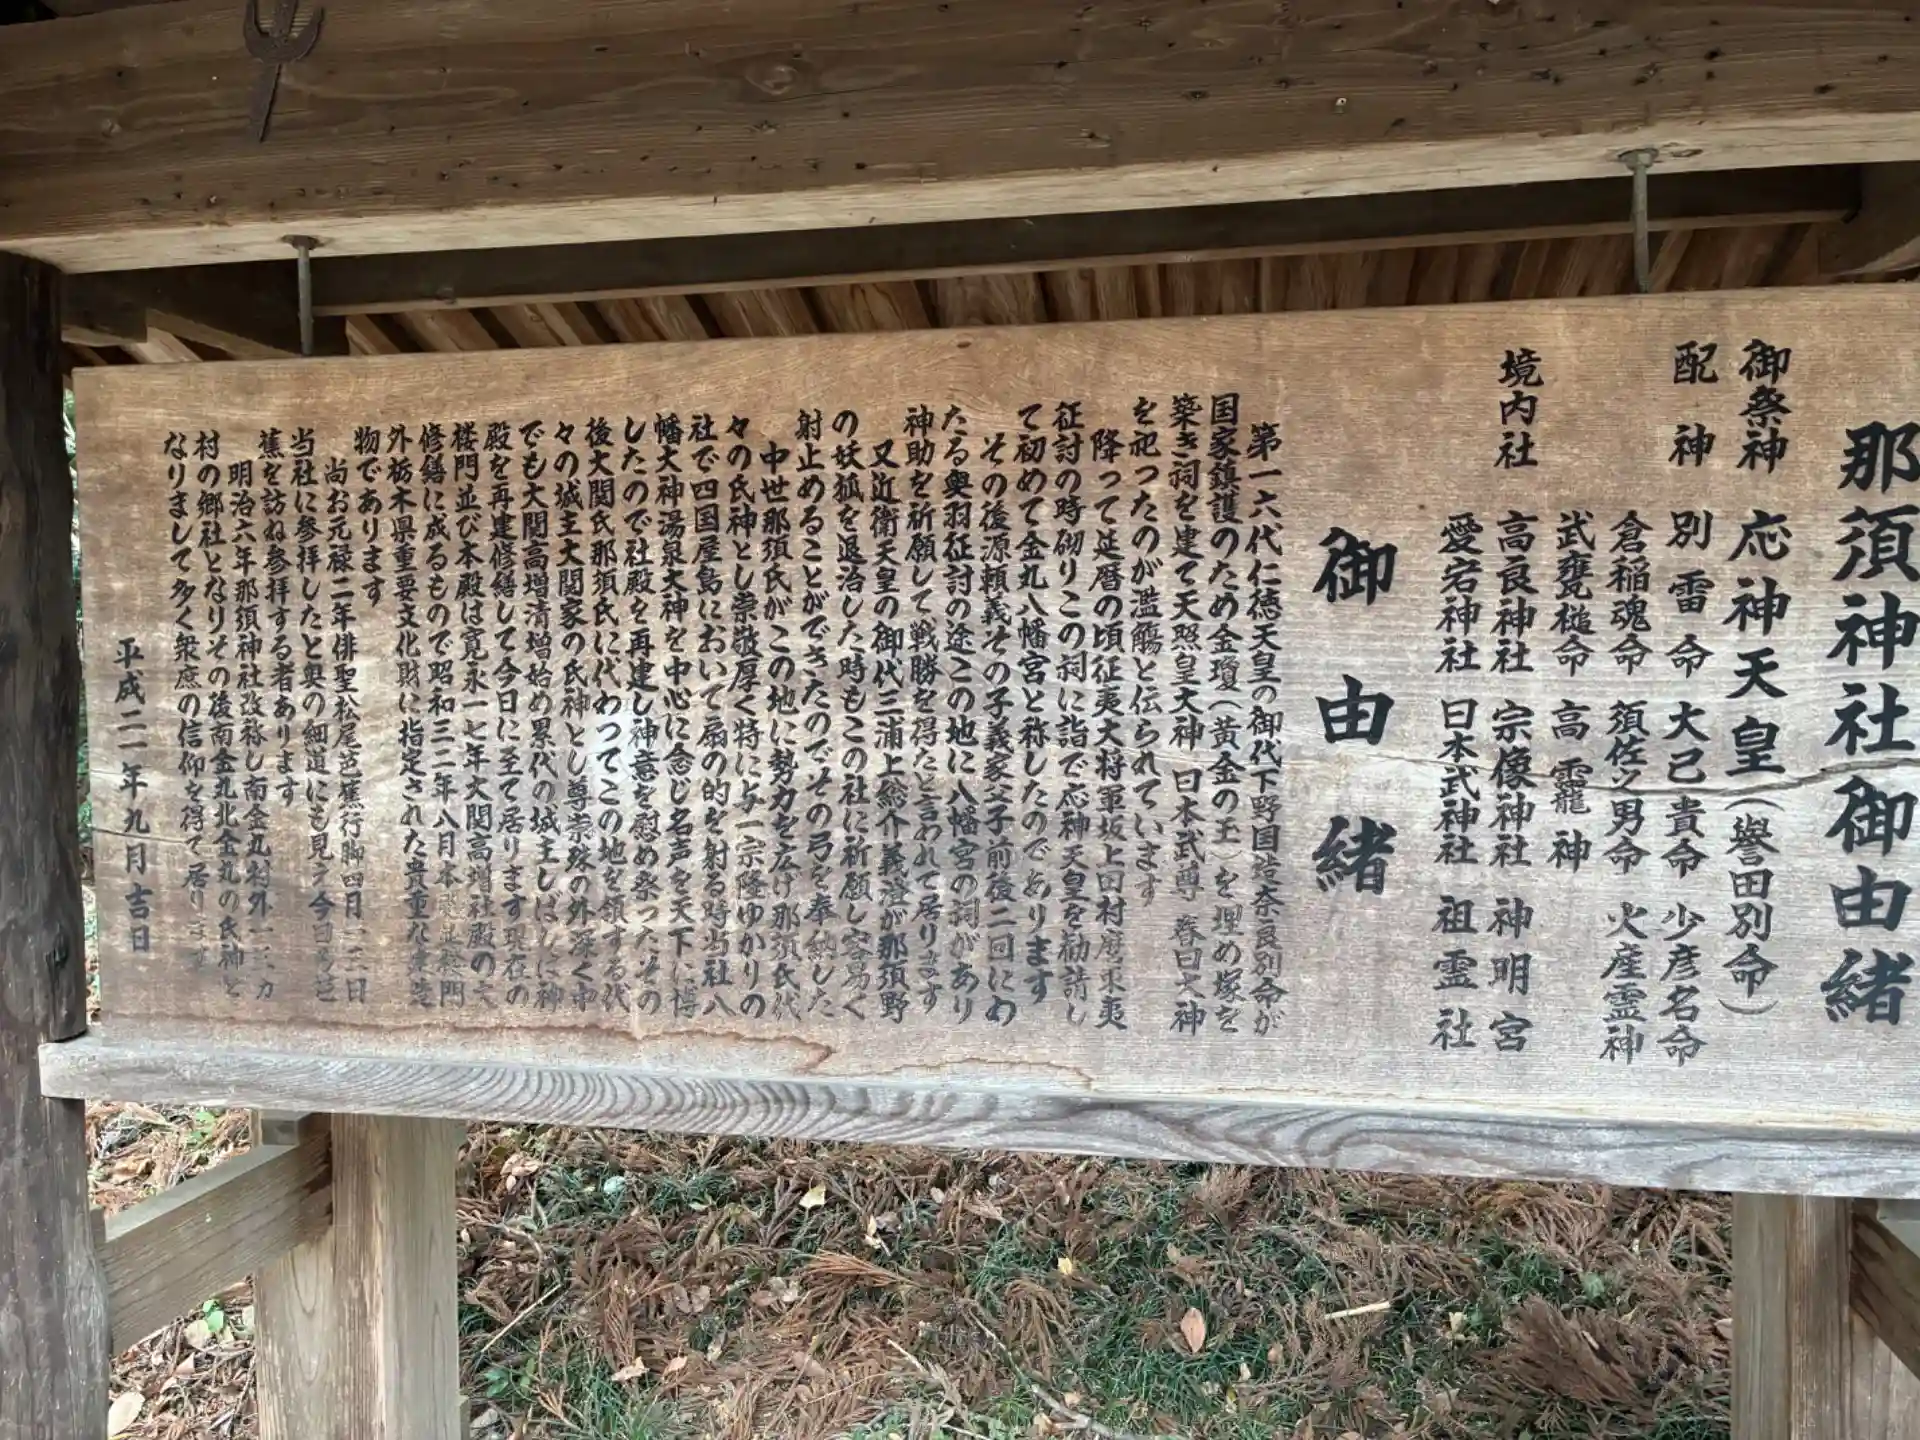 那須神社御由緒
御祭神 応神天皇(誉田別命)
配神 別雷命 大己貴命 少彦名命
倉稲魂命 須佐之男命 火産霊神
武甕槌命 高龗神
境内社 高良神社 宗像神社 神明宮
愛宕神社 日本武神社 祖霊社
御由緒
第一六代仁徳天皇の御代下野国造奈良別命が
国家鎮護のため金瓊(黄金の玉)を埋め塚を
築き祠を建て天照皇大神 日本武尊 春日大神
を祀ったのが濫觴と伝られています
降って延暦の頃征夷大将軍坂上田村麿東夷
征討の時砌りこの祠に詣で応神天皇を勧請し
て初めて金丸八幡宮と称したのであります
その後源頼義その子義家父子前後二回にわ
たる奥羽征討の途この地に八幡宮の祠があり
神助を祈願して戦勝を得たと言われて居ります
又近衛天皇の御代三浦上総介義澄が那須野
の妖狐を退治した時もこの社に祈願し容易く
射止めることができたのでその弓を奉納した
中世那須氏がこの地に勢力を広げ那須氏代
々の氏神とし崇敬厚く特に与一宗隆ゆかりの
社で四国屋島において扇の的を射る時当社八
幡大神湯泉大神を中心に念じ名声を天下に博
したので社殿を再建し神意を慰め奉ったその
後大関氏那須氏に代わってこの地を領する代
々の城主大関家の氏神とし尊崇殊の外深く中
でも大関高増清増始め累代の城主しばしば神
殿を再建修繕して今日に至て居ります現在の
楼門並び本殿は寛永一七年大関高増社殿の大
修繕に成るもので昭和三二年八月本殿並楼門
外栃木県重要文化財に指定された貴重な建造
物であります
尚お元禄二年俳聖松尾芭蕉行脚四月一三日
当社に参拝したと奥の細道にも見う今日も芭
蕉を訪ね参拝する者あります
明治六年那須神社改称し南金丸村外一三カ
村の郷社となりその後南金丸北金丸の氏神と
なりまして多く衆庶の信仰を得て居ります
平成二一年九月吉日